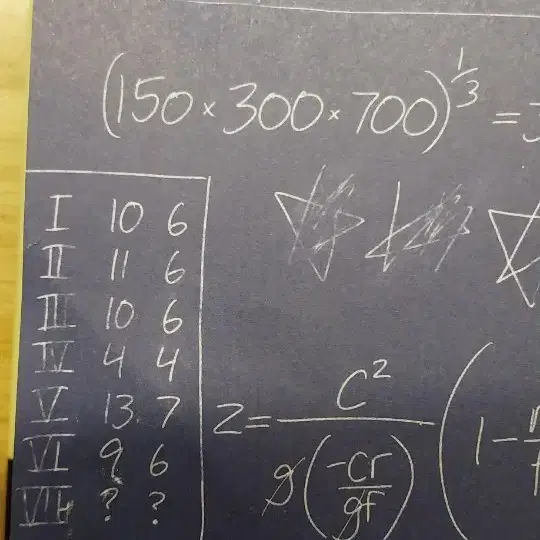 (150 × 300 × 700)^1/3 = 3
I 10 6
II 11 6
III 10 6
IV 4 4
V 13 7
VI 9 6
VII ? ?
z = c² / g(-cr/gf) (1 -